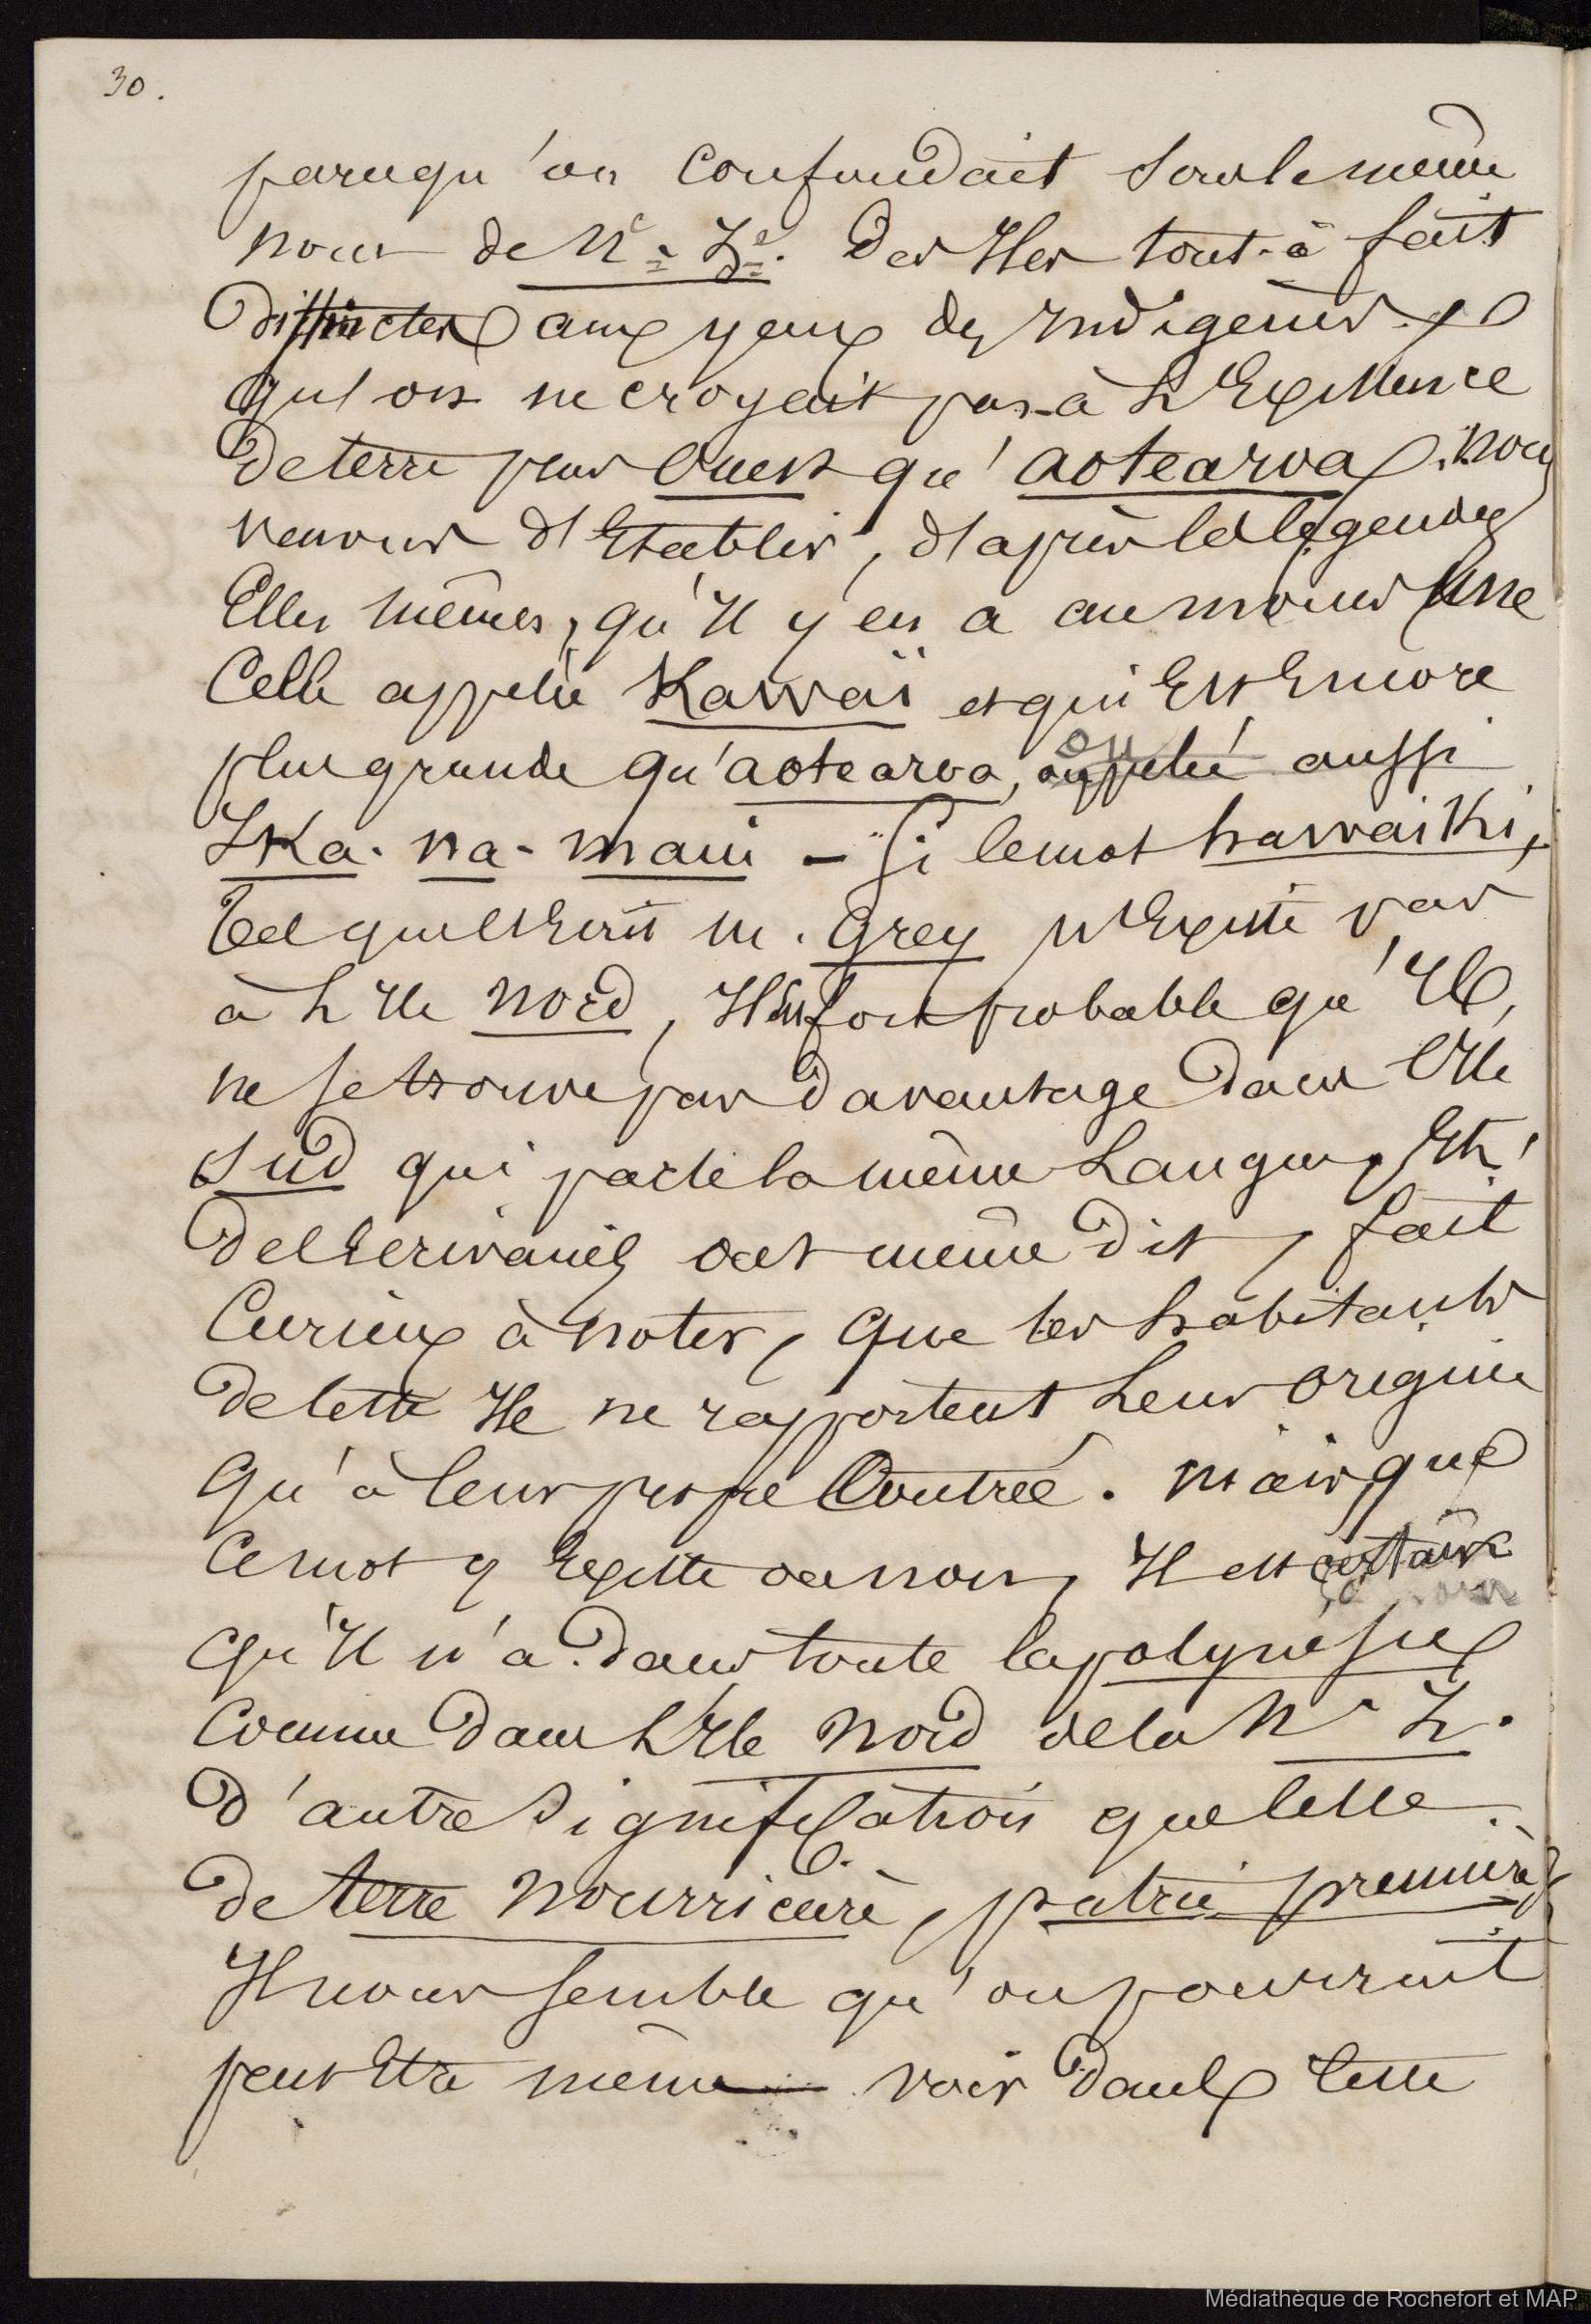 30.
parcequ'on confondait sous le même
nom de Nle-Zde. des Iles tout-à-fait
distinctes aux yeux des Indigènes,
qu'on ne croyait pas à l'Existence
de terre plus Ouest qu'aotearoa. nous
venons d'Etablir, d'après les légendes
Elles mêmes, qu'Il y en a au moins Une
Celle appelée Kawaï et qui Est Encore
plus grande qu'aotearoa, ou aussi
Ika-na-maui - Si le mot hawaiki,
tel que l'Ecrit m. Grey n'Existe pas
à l'Ile Nord, Il est fort probable qu'Il
ne se trouve pas d'avantage dans l'Ile
Sud qui parle la même Langue. Et
des Ecrivains ont même dit, fait
Curieux à noter, que les habitants
de cette Ile ne rapportent Leur origine
qu'à leur propre Contrée. mais que
Ce mot y Existe ou non, Il est certain
qu'Il n'a dans toute la polynésie
Comme dans l'Ile Nord de la N. Z.
d'autre signification que celle
de terre nourricière, patrie première,
Il nous semble qu'on pourrait
peut Etre même voir dans cette
Médiathèque de Rochefort et MAP